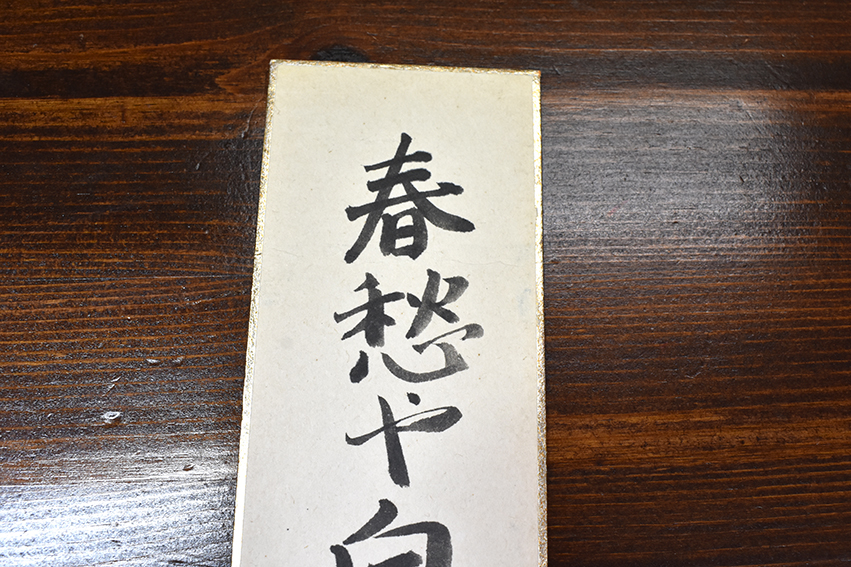 春愁や